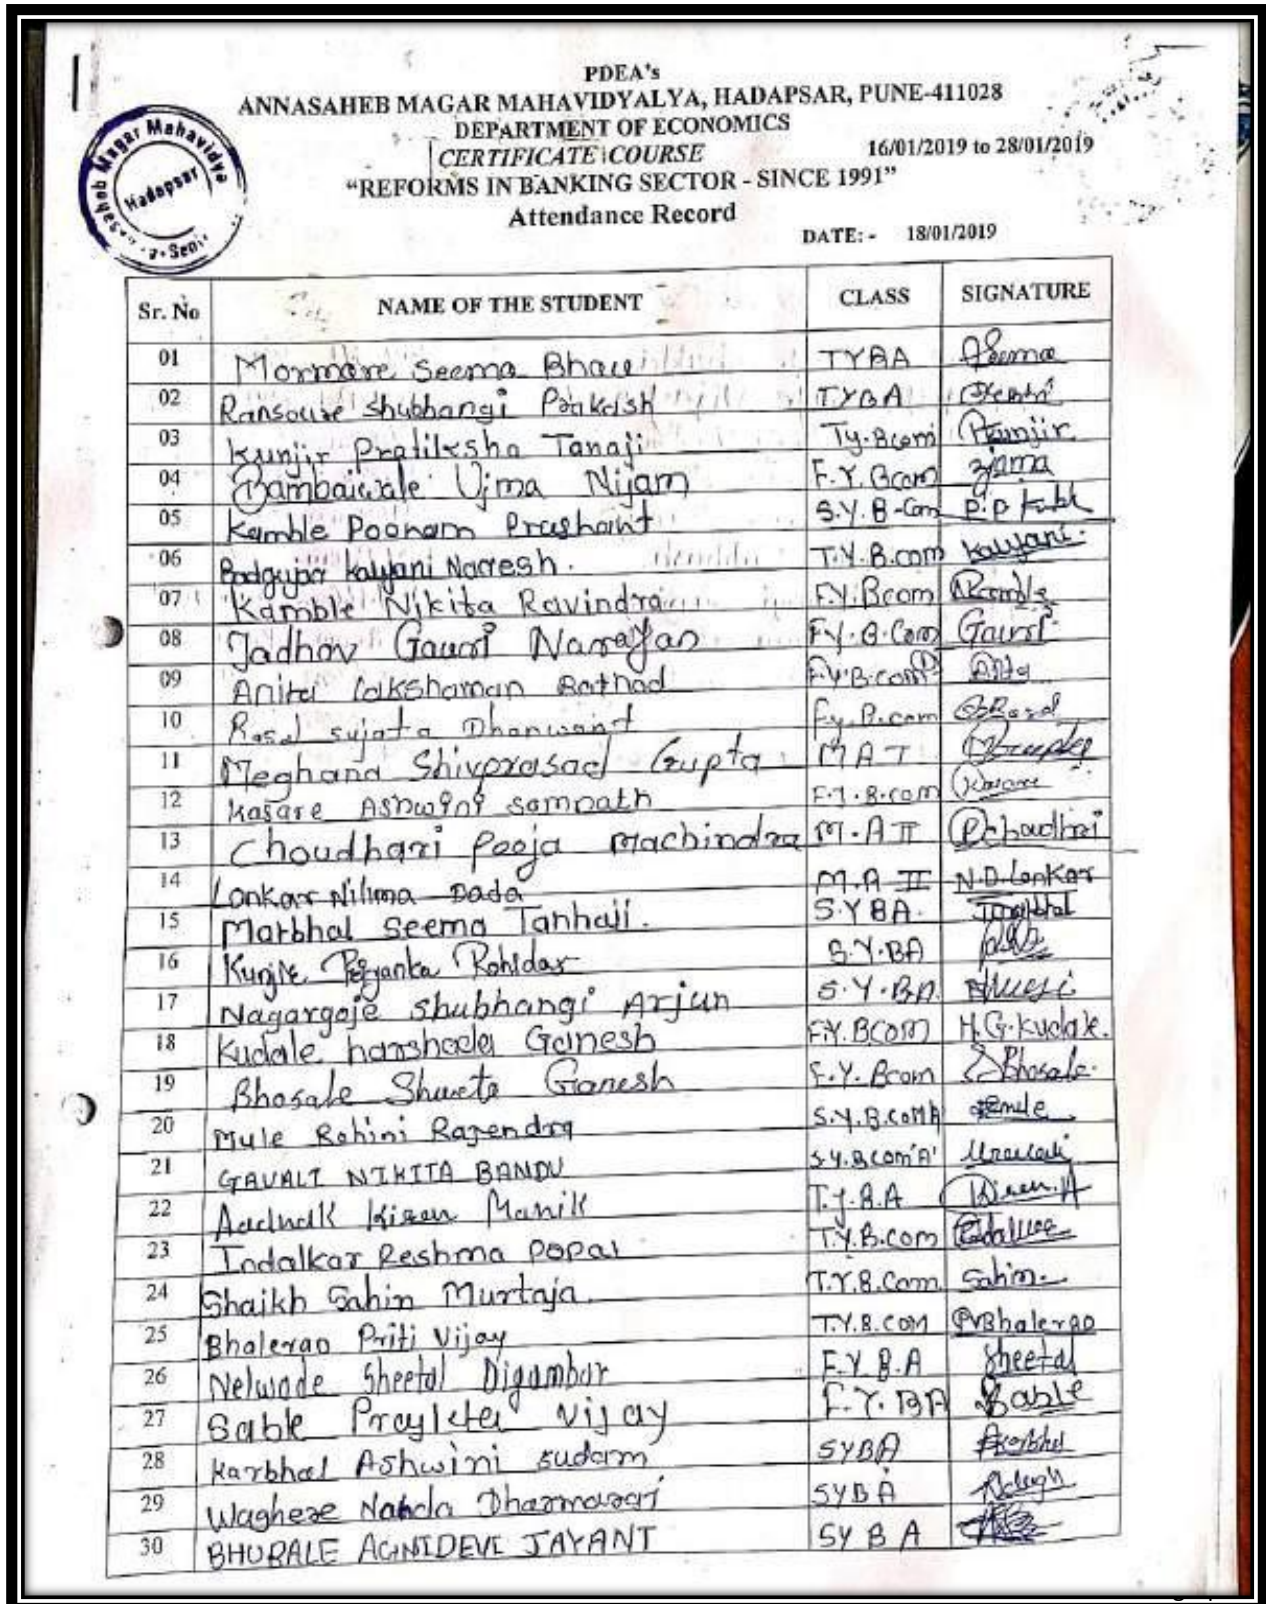 PDEA's
ANNASAHEB MAGAR MAHAVIDYALYA, HADAPSAR, PUNE-411028
DEPARTMENT OF ECONOMICS
CERTIFICATE COURSE 16/01/2019 to 28/01/2019
"REFORMS IN BANKING SECTOR - SINCE 1991"
Attendance Record
DATE:- 18/01/2019
Magar Mahavidya
Hadapsar
Sr. No NAME OF THE STUDENT CLASS SIGNATURE
01 Mormare Seema Bhau TYBA Seema
02 Ransoure Shubhangi Prakash TYBA
03 Kunjir Pratiksha Tanaji Ty.Bcom Pkunjir
04 Bambaiwale Ujma Nijam F.Y.Bcom
05 Kamble Poonam Prashant S.Y.B-Com
06 Badgujar Kalyani Naresh. T.Y.B.com Kalyani.
07 Kamble Nikita Ravindra F.Y.Bcom
08 Jadhav Gauri Narayan F.Y.B.Com Gauri
09 Anita Lakshaman Rathod F.Y.B.com
10 Rasal Sujata Dhanwant F.y.B.com
11 Meghana Shivprasad Gupta M A I MGupta
12 Kasare Ashwini Sampath F.Y.B.com
13 Choudhari Pooja Machindra M.A II Pchaudhri
14 Lonkar Nilima Dada M.A II N.D.Lonkar
15 Marbhal Seema Tanhaji. S.Y BA.
16 Kunjir Priyanka Rohidas S.Y.BA
17 Nagargoje Shubhangi Arjun S.Y.BA
18 Kudale harshada Ganesh F.Y.BCOM H.G.Kudale.
19 Bhosale Shweta Ganesh F.Y.Bcom SBhosale.
20 Mule Rohini Rajendra S.Y.B.com A
21 GAVALI NIKITA BANDU S.Y.B.com'A'
22 Aadhalk Kiran Manik T.Y.B.A Kiran.A
23 Indalkar Reshma Popat T.Y.B.com
24 Shaikh Sahin Murtaja. T.Y.B.Com Sahin
25 Bhalerao Priti Vijay T.Y.B.COM PVBhalerao
26 Nelwade Sheetal Digambar F.Y B.A Sheetal
27 Sable Vijay F.Y.BA Sable
28 Karbhal Ashwini sudam SYBA
29 Waghere Nanda Dharmaraj SYBA
30 BHURALE AGNIDEVI JAYANT SY B A